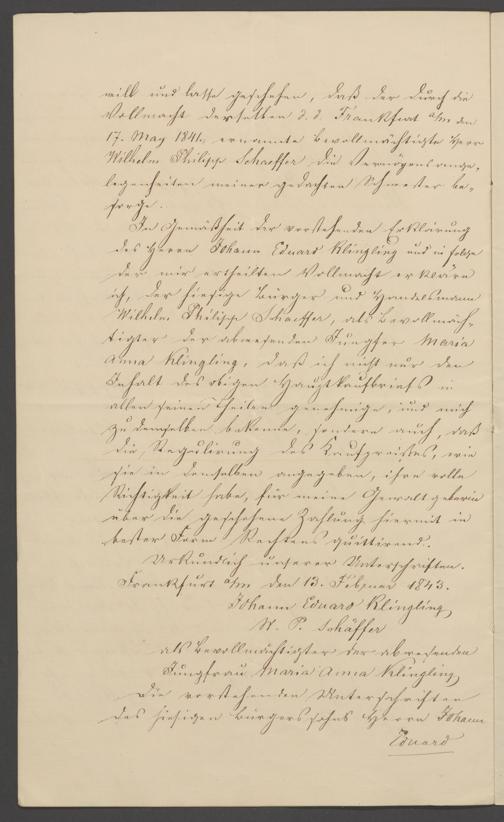 will und lasse geschehen, daß der durch die
Vollmacht derselben d. d. Frankfurt a/m den
17. May 1841. ernannte Bevollmächtigte Herr
Wilhelm Philipp Schaeffer die Vermögensange-
legenheiten meiner gedachten Schwester be-
sorge.
In Gemäßheit der vorstehenden Erklärung
des Herrn Johann Eduard Klingling und in folge
der mir ertheilten Vollmacht erkläre
ich, der hiesige Bürger und Handelsmann
Wilhelm Philipp Schaeffer, als Bevollmäch-
tigter der abwesenden Jungfer Maria
Anna Klingling, daß ich nicht nur den
Inhalt des obigen Hauptkaufbriefs in
allen seinen Theilen genehmige, und mich
zu demselben bekenne, sondern auch, daß
die Regulirung des Kaufpreises, wie
sie in demselben angegeben, ihre volle
Richtigkeit habe, für meine Gewaltgeberin
über die geschehene Zahlung hiermit in
bester Form Rechtens quittirend.
Urkundlich unserer Unterschriften.
Frankfurt a/m den 13. Februar 1843.
Johann Eduard Klingling
W. P. Schäffer
als Bevollmächtigter der abwesenden
Jungfrau Maria Anna Klingling
Die vorstehenden Unterschriften
des hiesigen Bürgerssohns Herrn Johann
Eduard